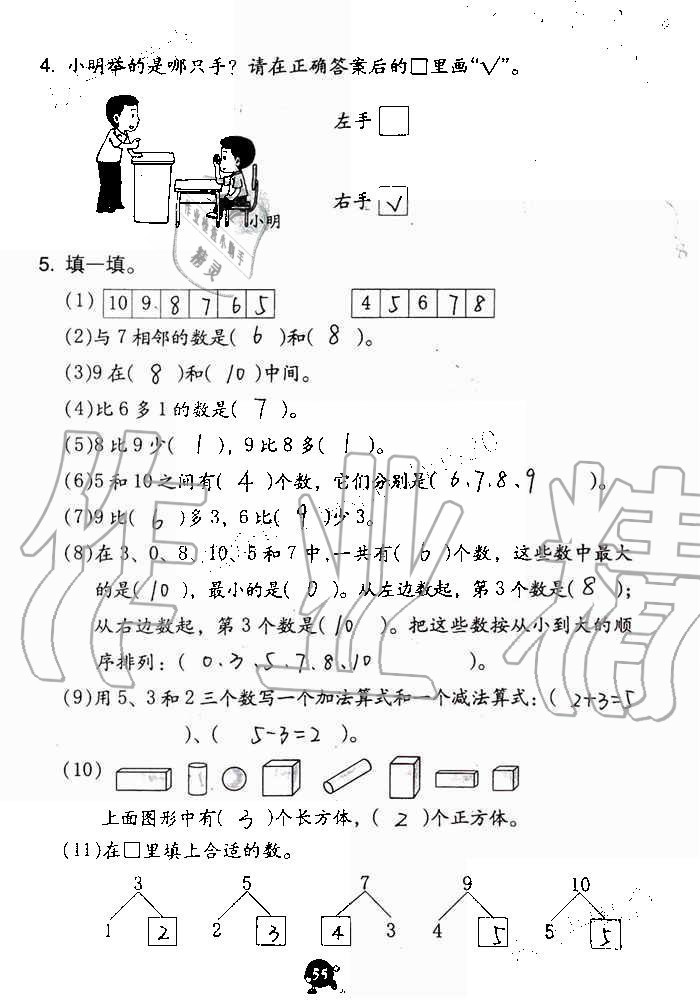 4. 小明举的是哪只手？请在正确答案后的□里画“√”。
左手 □
右手 √
小明
5. 填一填。
(1) 10 9 8 7 6 5 4 5 6 7 8
(2)与7相邻的数是( 6 )和( 8 )。
(3)9在( 8 )和( 10 )中间。
(4)比6多1的数是( 7 )。
(5)8比9少( 1 )，9比8多( 1 )。
(6)5和10之间有( 4 )个数，它们分别是( 6、7、8、9 )。
(7)9比( 6 )多3，6比( 9 )少3。
(8)在3、0、8、10、5和7中，一共有( 6 )个数，这些数中最大
的是( 10 )，最小的是( 0 )。从左边数起，第3个数是( 8 )；
从右边数起，第3个数是( 10 )。把这些数按从小到大的顺
序排列：( 0、3、5、7、8、10 )。
(9)用5、3和2三个数写一个加法算式和一个减法算式：( 2+3=5
)、( 5-3=2 )。
(10)
上面图形中有( 3 )个长方体，( 2 )个正方体。
(11)在□里填上合适的数。
3 5 7 9 10
1 2 2 3 4 3 4 5 5 5
55
作业精
作业检查小助手
精灵